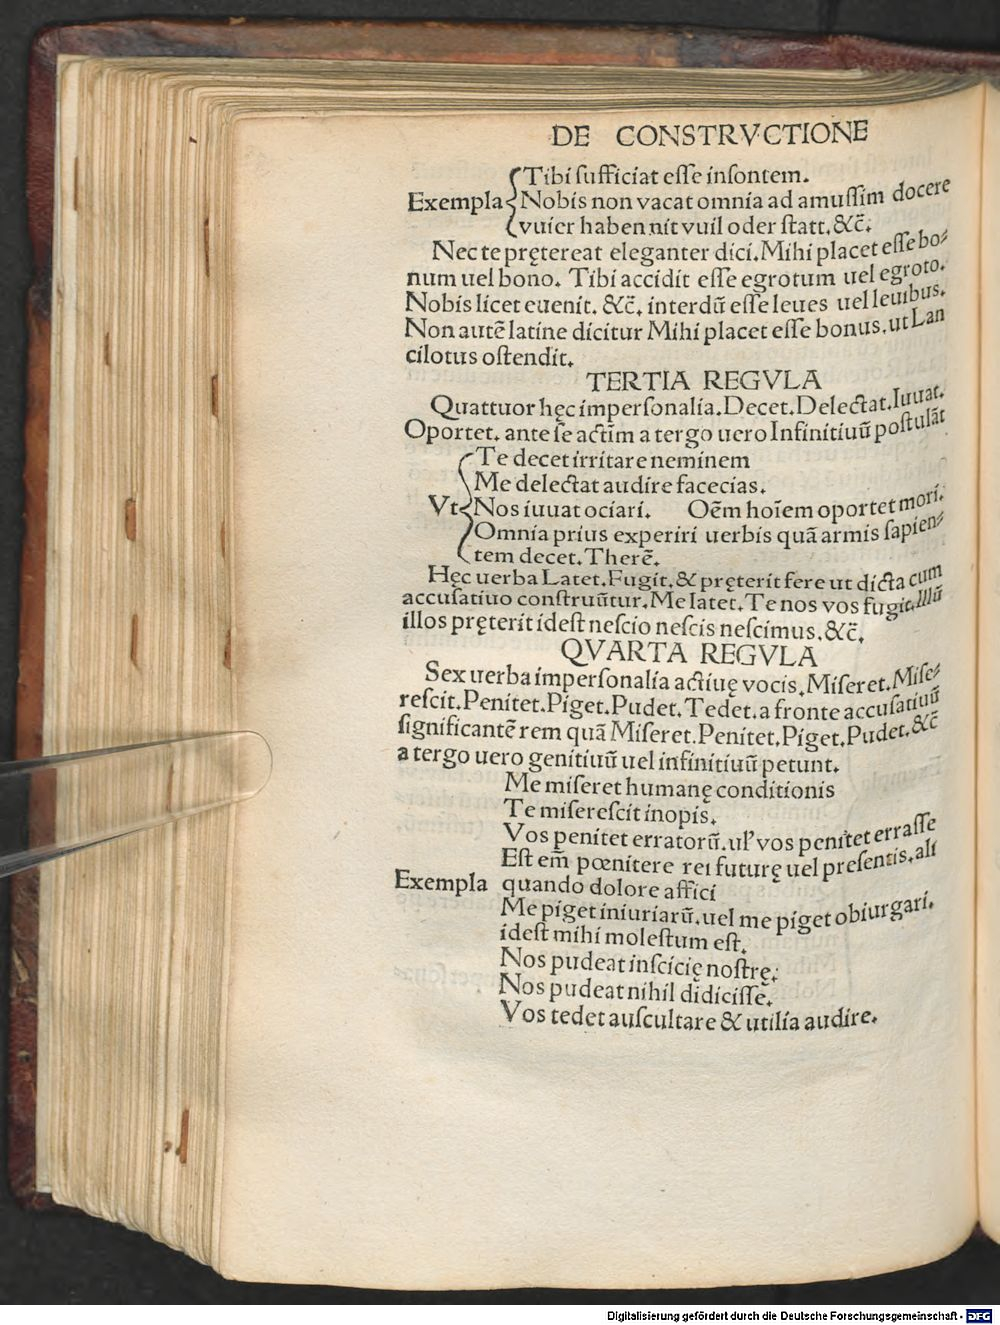 DE CONSTRVCTIONE
Tibi ſufficiat eſſe inſontem.
Exempla Nobis non vacat omnia ad amuſſim docere
vuier haben nit vuil oder ſtatt. &c̄.
Nec te prętereat eleganter dici. Mihi placet eſſe bo⸗
num uel bono. Tibi accidit eſſe egrotum uel egroto.
Nobis licet euenit. &c̄. interdū eſſe leues uel leuibus.
Non autē latine dicitur Mihi placet eſſe bonus. ut Lan
cilotus oſtendit.
TERTIA REGVLA
Quattuor hęc imperſonalia. Decet. Delectat. Iuuat.
Oportet. ante ſe actīm a tergo uero Infinitiuū poſtulāt
Te decet irritare neminem
Me delectat audire facecias.
Vt Nos iuuat ociari. Oēm hoīem oportet mori.
Omnia prius experiri uerbis quā armis ſapien⸗
tem decet. Therē.
Hęc uerba Latet. Fugit. & pręterit fere ut dicta cum
accuſatiuo conſtruūtur. Me latet. Te nos vos fugit. Illū
illos pręterit ideſt neſcio neſcis neſcimus. &c̄.
QVARTA REGVLA
Sex uerba imperſonalia actiuę vocis. Miſeret. Miſe⸗
reſcit. Penitet. Piget. Pudet. Tedet. a fronte accuſatiuū
ſignificantē rem quā Miſeret. Penitet. Piget. Pudet. &c̄
a tergo uero genitiuū uel infinitiuū petunt.
Me miſeret humanę conditionis
Te miſereſcit inopis.
Vos penitet erratorū. ul' vos penitet erraſſe
Eſt em̄ pœnitere rei futurę uel preſentis. ali
Exempla quando dolore affici
Me piget iniuriarū. uel me piget obiurgari.
ideſt mihi moleſtum eſt.
Nos pudeat inſcicię noſtrę.
Nos pudeat nihil didiciſſe.
Vos tedet auſcultare & utilia audire.
Digitalisierung gefördert durch die Deutsche Forschungsgemeinschaft - DFG